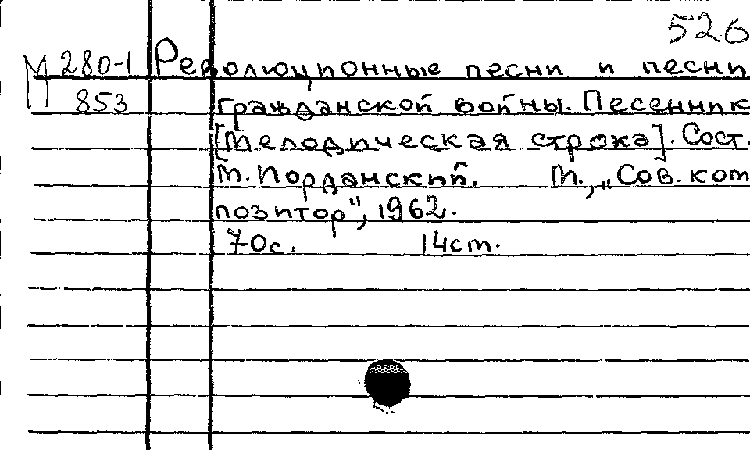 526
М 280-1 Революционные песни и песни
853 гражданской войны. Песенник
[Мелодическая строка]. Сост.
М. Иорданский. М., „Сов. ком
позитор", 1962.
70с. 14см.